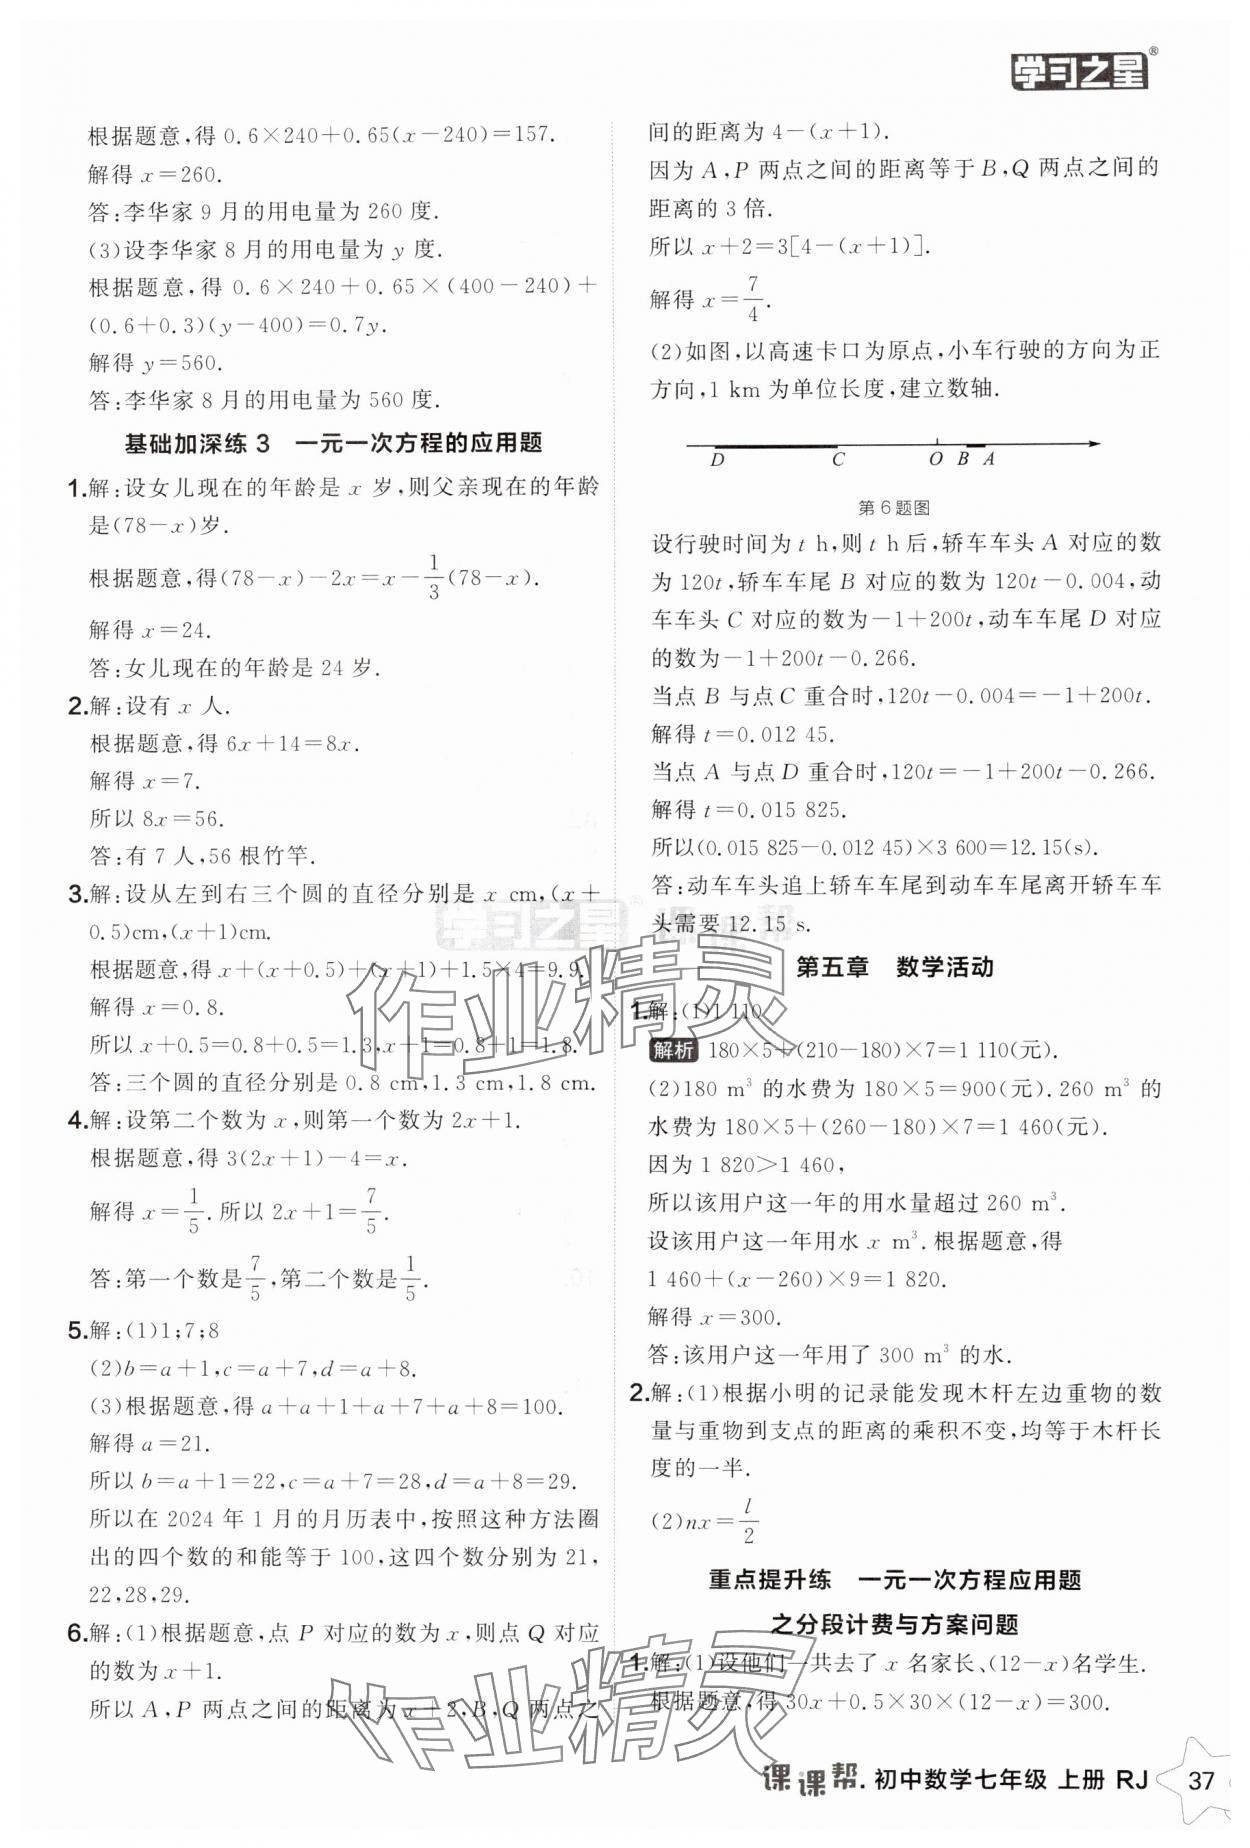 学习之星®
根据题意,得 0.6×240+0.65(x-240)=157.
解得 x=260.
答:李华家 9 月的用电量为 260 度.
(3)设李华家 8 月的用电量为 y 度.
根据题意,得 0.6×240+0.65×(400-240)+
(0.6+0.3)(y-400)=0.7y.
解得 y=560.
答:李华家 8 月的用电量为 560 度.
基础加深练 3 一元一次方程的应用题
1.解:设女儿现在的年龄是 x 岁,则父亲现在的年龄
是(78-x)岁.
根据题意,得(78-x)-2x=x-1/3(78-x).
解得 x=24.
答:女儿现在的年龄是 24 岁.
2.解:设有 x 人.
根据题意,得 6x+14=8x.
解得 x=7.
所以 8x=56.
答:有 7 人,56 根竹竿.
3.解:设从左到右三个圆的直径分别是 x cm,(x+
0.5)cm,(x+1)cm.
根据题意,得 x+(x+0.5)+(x+1)+1.5×4=9.9.
解得 x=0.8.
所以 x+0.5=0.8+0.5=1.3,x+1=0.8+1=1.8.
答:三个圆的直径分别是 0.8 cm,1.3 cm,1.8 cm.
4.解:设第二个数为 x,则第一个数为 2x+1.
根据题意,得 3(2x+1)-4=x.
解得 x=1/5.所以 2x+1=7/5.
答:第一个数是7/5,第二个数是1/5.
5.解:(1)1;7;8
(2)b=a+1,c=a+7,d=a+8.
(3)根据题意,得 a+a+1+a+7+a+8=100.
解得 a=21.
所以 b=a+1=22,c=a+7=28,d=a+8=29.
所以在 2024 年 1 月的月历表中,按照这种方法圈
出的四个数的和能等于 100,这四个数分别为 21,
22,28,29.
6.解:(1)根据题意,点 P 对应的数为 x,则点 Q 对应
的数为 x+1.
所以 A,P 两点之间的距离为 x+2,B,Q 两点之
间的距离为 4-(x+1).
因为 A,P 两点之间的距离等于 B,Q 两点之间的
距离的 3 倍.
所以 x+2=3[4-(x+1)].
解得 x=7/4.
(2)如图,以高速卡口为原点,小车行驶的方向为正
方向,1 km 为单位长度,建立数轴.
D C O B A
第 6 题图
设行驶时间为 t h,则 t h 后,轿车车头 A 对应的数
为 120t,轿车车尾 B 对应的数为 120t-0.004,动
车车头 C 对应的数为-1+200t,动车车尾 D 对应
的数为-1+200t-0.266.
当点 B 与点 C 重合时,120t-0.004=-1+200t.
解得 t=0.012 45.
当点 A 与点 D 重合时,120t=-1+200t-0.266.
解得 t=0.015 825.
所以(0.015 825-0.012 45)×3 600=12.15(s).
答:动车车头追上轿车车尾到动车车尾离开轿车车
头需要 12.15 s.
第五章 数学活动
1.解:(1)1 110
解析 180×5+(210-180)×7=1 110(元).
(2)180 m³ 的水费为 180×5=900(元).260 m³ 的
水费为 180×5+(260-180)×7=1 460(元).
因为 1 820>1 460,
所以该用户这一年的用水量超过 260 m³.
设该用户这一年用水 x m³.根据题意,得
1 460+(x-260)×9=1 820.
解得 x=300.
答:该用户这一年用了 300 m³ 的水.
2.解:(1)根据小明的记录能发现木杆左边重物的数
量与重物到支点的距离的乘积不变,均等于木杆长
度的一半.
(2)nx=l/2
重点提升练 一元一次方程应用题
之分段计费与方案问题
1.解:(1)设他们一共去了 x 名家长、(12-x)名学生.
根据题意,得 30x+0.5×30×(12-x)=300.
学习之星® 课课帮
作业精灵
作业精灵
课课帮.初中数学七年级 上册 RJ 37